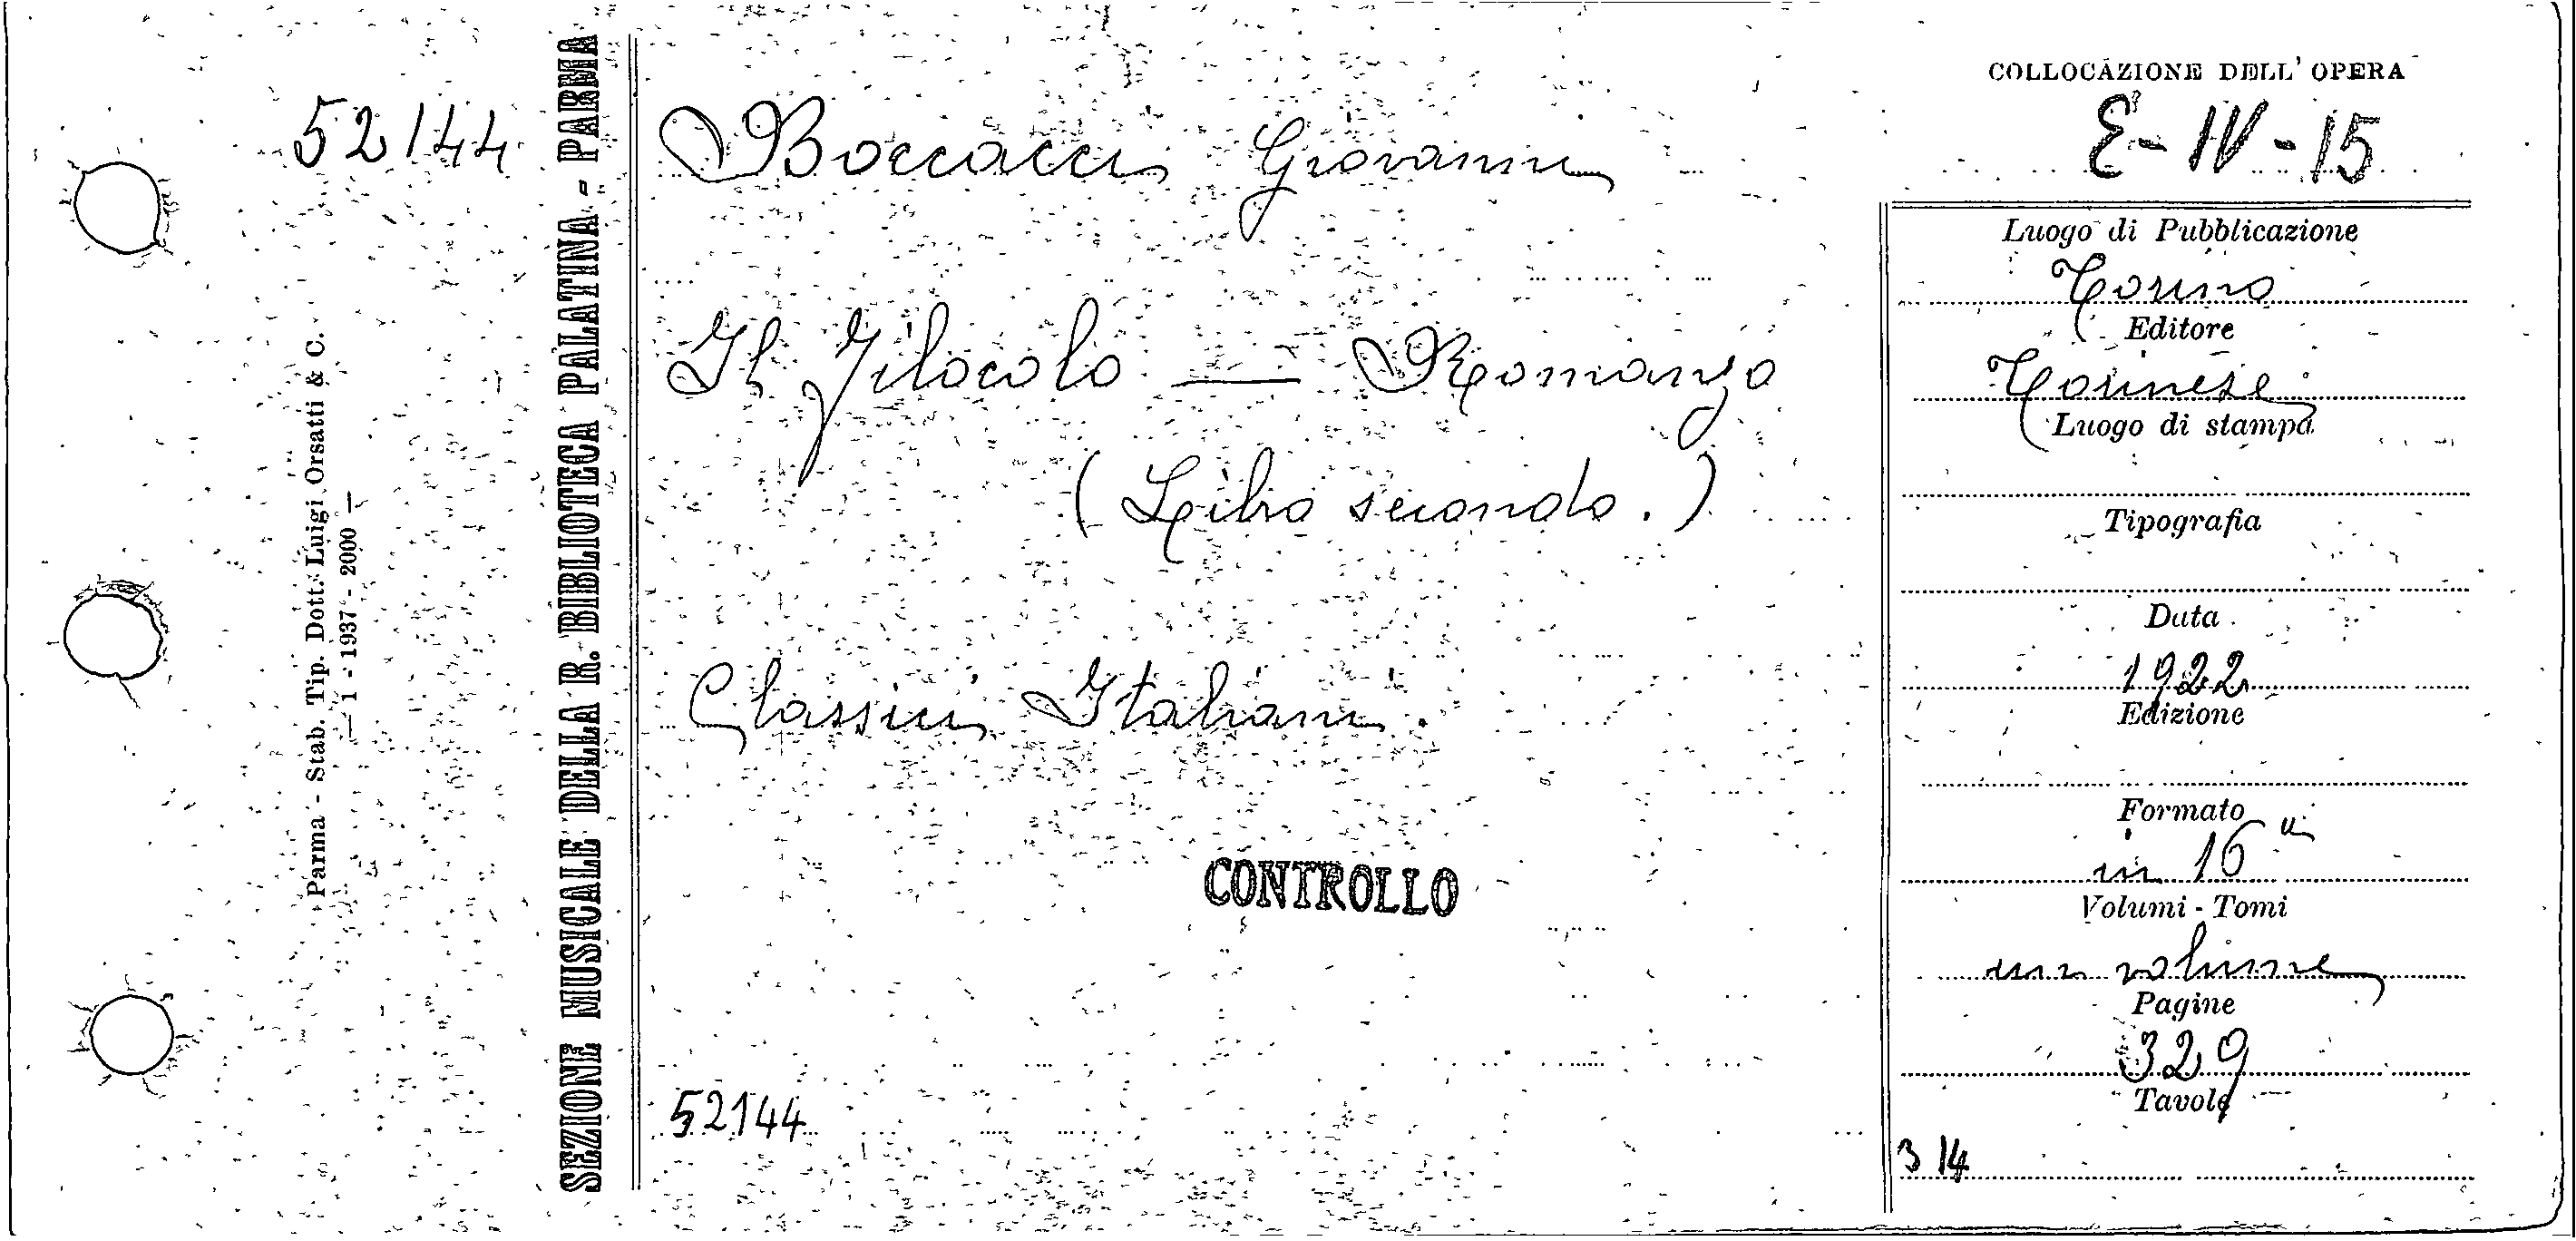 52144
Parma - Stab. Tip. Dott. Luigi Orsatti & C.
— 1 - 1937 - 2000 —
SEZIONE MUSICALE DELLA R. BIBLIOTECA PALATINA - PARMA
Boccacci Giovanni
Il Filocolo — Romanzo
(Libro secondo.)
Classici Italiani
CONTROLLO
52144
COLLOCAZIONE DELL'OPERA
E-IV-15
Luogo di Pubblicazione
Torino
Editore
Torinese
Luogo di stampa
Tipografia
Data
1922
Edizione
Formato
in 16
Volumi - Tomi
un volume
Pagine
329
Tavole
314